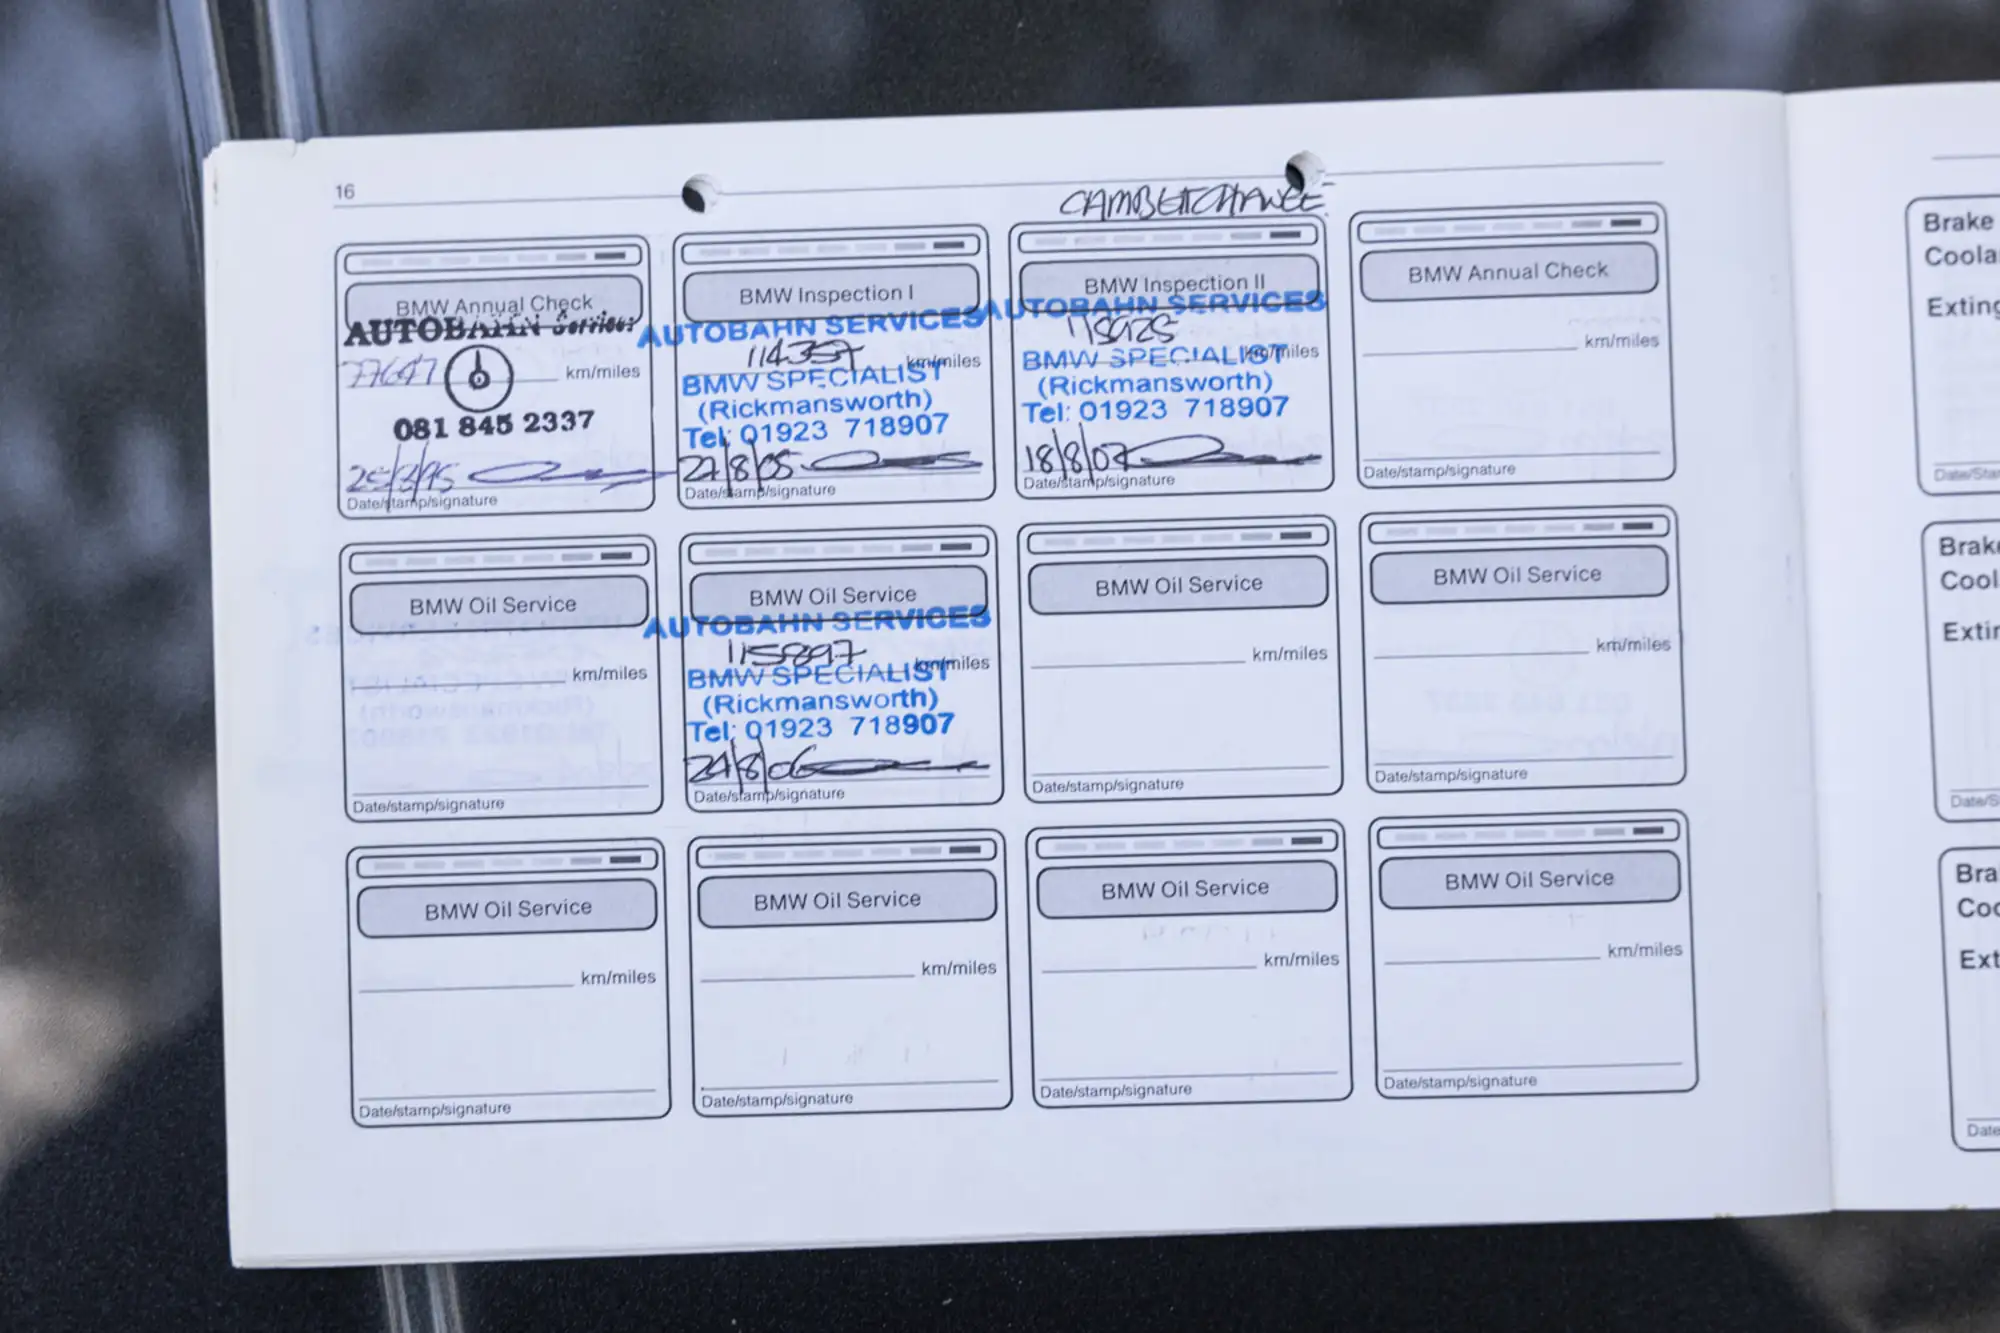 16
CAMBELTCHANGE
BMW Annual Check
AUTOBAHN Services
77647 km/miles
081 845 2337
Date/stamp/signature
BMW Inspection I
AUTOBAHN SERVICES
114357 km/miles
BMW SPECIALIST
(Rickmansworth)
Tel: 01923 718907
Date/stamp/signature
BMW Inspection II
AUTOBAHN SERVICES
115925
BMW SPECIALIST km/miles
(Rickmansworth)
Tel: 01923 718907
18/8/07
Date/stamp/signature
BMW Annual Check
km/miles
Date/stamp/signature
BMW Oil Service
km/miles
Date/stamp/signature
BMW Oil Service
AUTOBAHN SERVICES
115897 km/miles
BMW SPECIALIST
(Rickmansworth)
Tel: 01923 718907
Date/stamp/signature
BMW Oil Service
km/miles
Date/stamp/signature
BMW Oil Service
km/miles
Date/stamp/signature
BMW Oil Service
km/miles
Date/stamp/signature
BMW Oil Service
km/miles
Date/stamp/signature
BMW Oil Service
km/miles
Date/stamp/signature
BMW Oil Service
km/miles
Date/stamp/signature
Brake
Coola
Exting
Date/Sta
Brak
Cool
Extin
Date/S
Bra
Coo
Ext
Date